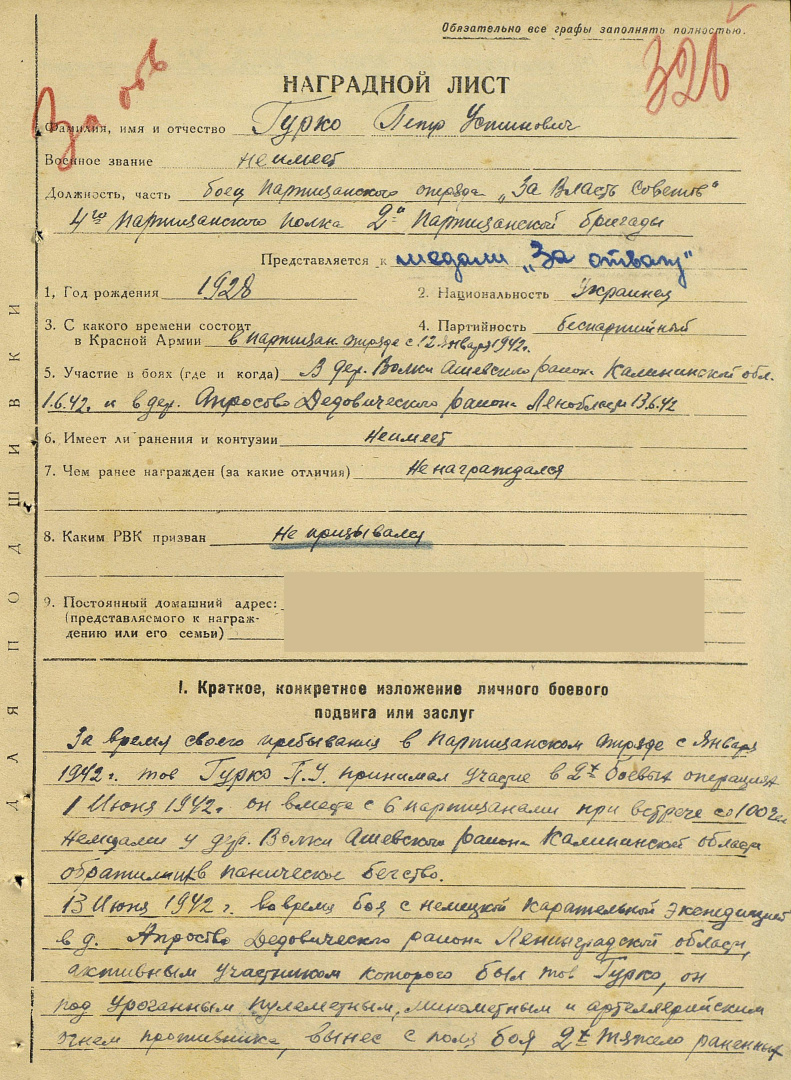 Обязательно все графы заполнять полностью.
За отв
326
НАГРАДНОЙ ЛИСТ
Фамилия, имя и отчество Гурко Петр Устинович
Военное звание неимеет
Должность, часть боец партизанского отряда „За Власть Советов"
4го партизанского полка 2й Партизанской бригады
Представляется к медали „За отвагу"
1, Год рождения 1928 2. Национальность Украинец
3. С какого времени состоит 4. Партийность беспартийный
в Красной Армии в партизан. отряде с 12 января 1942г.
5. Участие в боях (где и когда) В дер. Волки Ашевского района Калининской обл.
1.6.42г. и в дер. Апросово Дедовического района Ленобласти 13.6.42
6. Имеет ли ранения и контузии Неимеет
7. Чем ранее награжден (за какие отличия) Ненаграждался
8. Каким РВК призван Не призывался
9. Постоянный домашний адрес:
(представляемого к награж-
дению или его семьи)
I. Краткое, конкретное изложение личного боевого
подвига или заслуг
За время своего пребывания в Партизанском отряде с Января
1942 г. тов Гурко П.У. принимал участие в 2х боевых операциях
1 Июня 1942г. он вместе с 6 партизанами при встрече со 100 чел
немцами у дер. Волки Ашевского района Калининской области
обратили их в паническое бегство.
13 Июня 1942 г. вовремя боя с немецкой карательной экспедицией
в д. Апросово Дедовического района Ленинградской области,
активным участником которого был тов Гурко, он
под ураганным, пулеметным, минометным и артеллерийским
огнем противника, вынес с поля боя 2х тяжело раненных
ДЛЯ ПОДШИВКИ